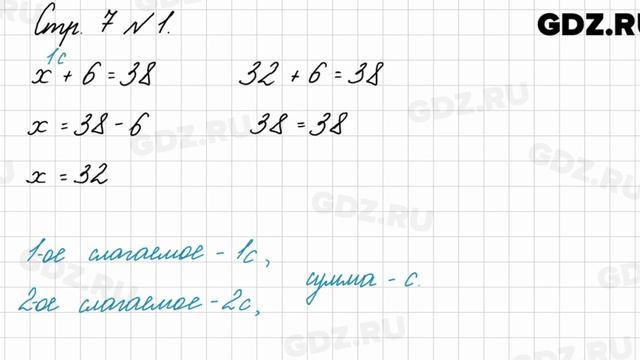 Стр. 7 № 1.
GDZ.RU
1с
x + 6 = 38
32 + 6 = 38
x = 38 - 6
38 = 38
x = 32
1-ое слагаемое - 1с,
сумма - с.
2-ое слагаемое - 2с,
GDZ.RU
GDZ.RU
GDZ.RU
GDZ.RU
GDZ.RU
GDZ.RU